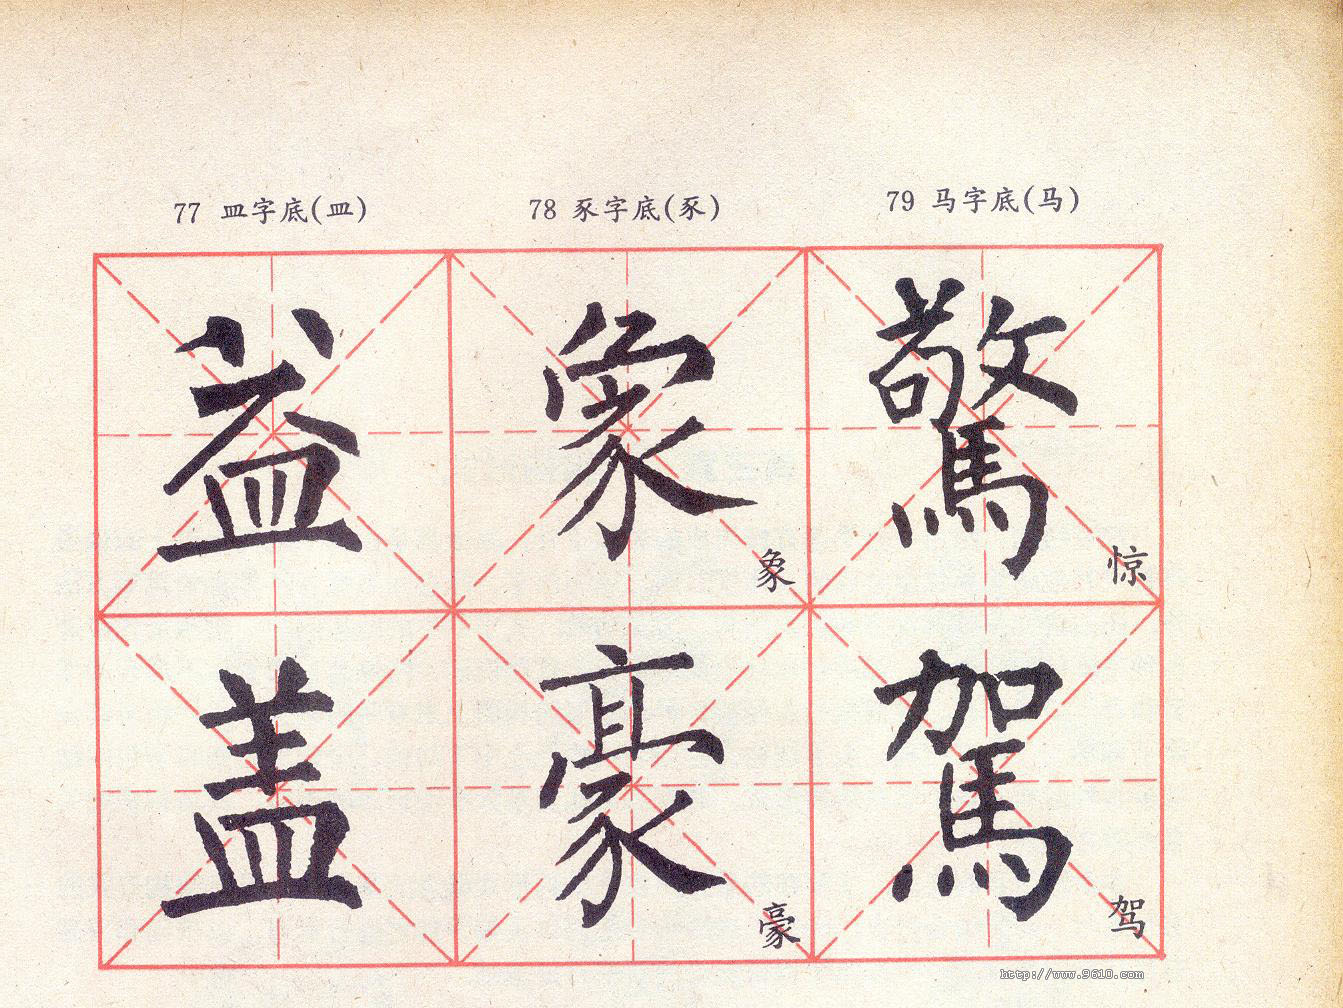 77 皿字底(皿) 78 豕字底(豕) 79 马字底(马)
益 象 驚
象 惊
盖 豪 駕
豪 驾
http://www.9610.com